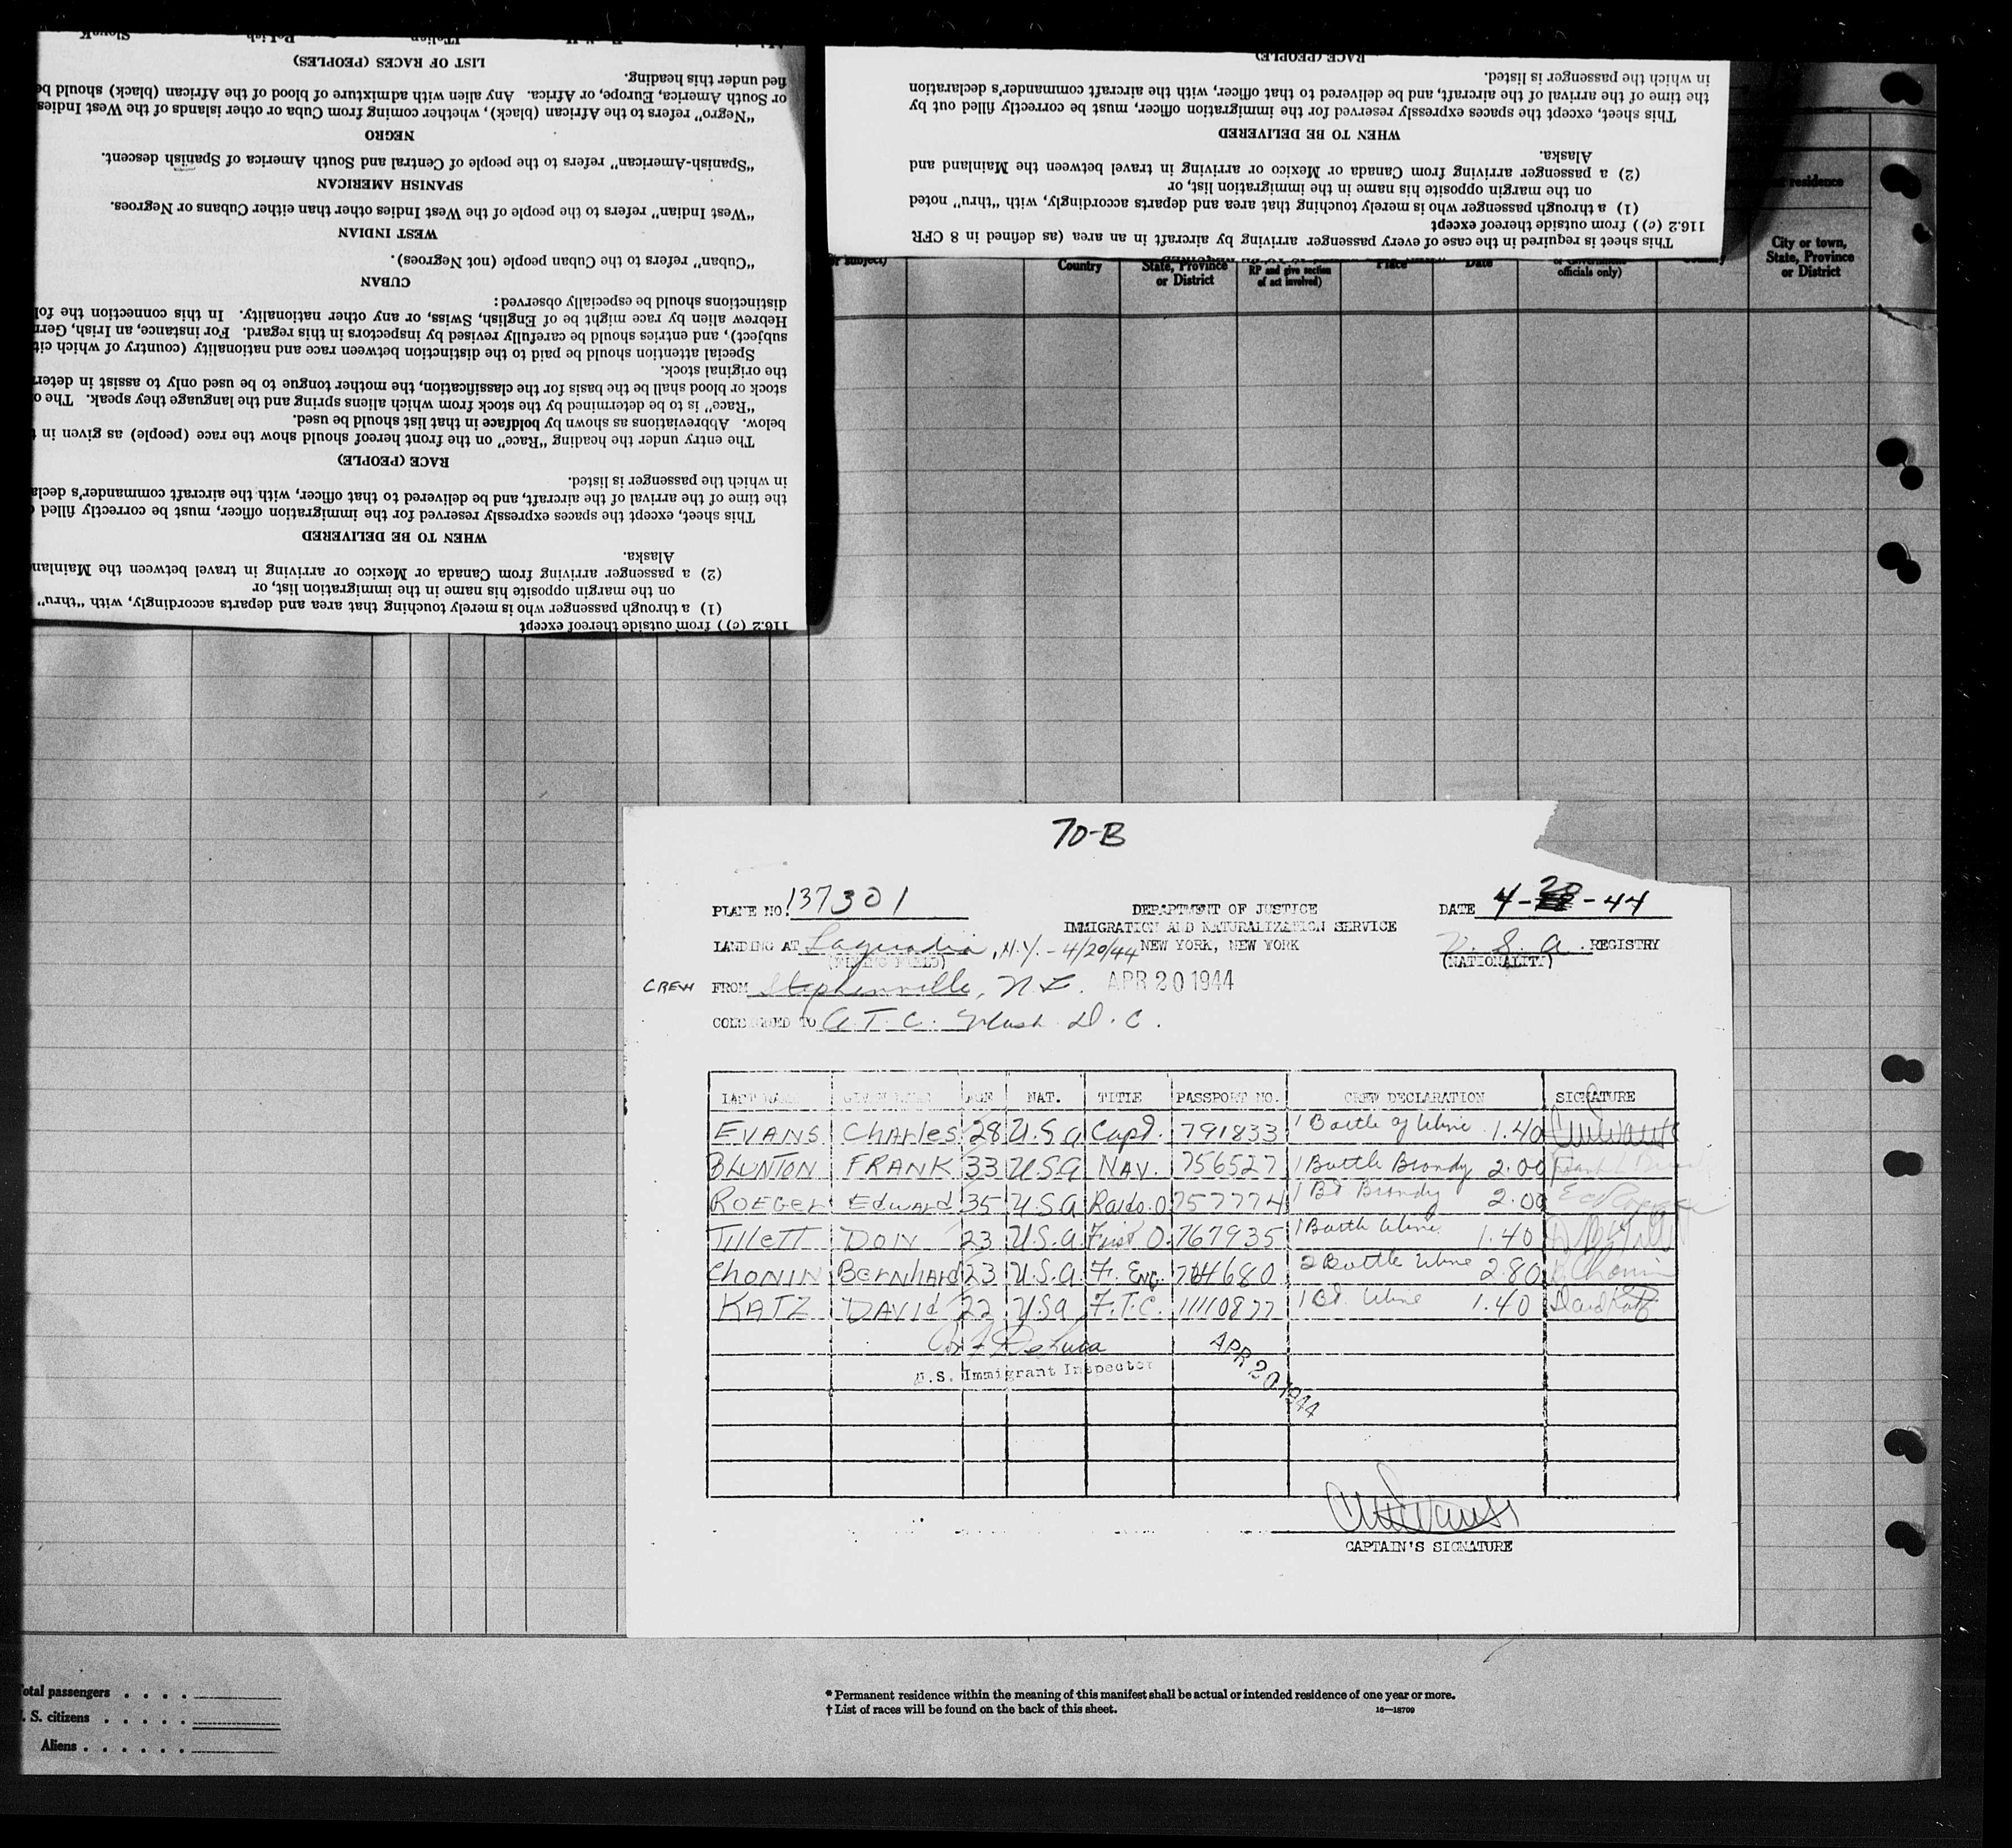 Slovak Polish Italian
LIST OF RACES (PEOPLES)
fied under this heading.
or South America, Europe, or Africa. Any alien with admixture of blood of the African (black) should be
"Negro" refers to the African (black), whether coming from Cuba or other islands of the West Indies
NEGRO
"Spanish-American" refers to the people of Central and South America of Spanish descent.
SPANISH AMERICAN
"West Indian" refers to the people of the West Indies other than either Cubans or Negroes.
WEST INDIAN
"Cuban" refers to the Cuban people (not Negroes).
CUBAN
distinctions should be especially observed:
Hebrew alien by race might be of English, Swiss, or any other nationality. In this connection the fol
subject), and entries should be carefully revised by inspectors in this regard. For instance, an Irish, Germ
Special attention should be paid to the distinction between race and nationality (country of which cit
the original stock.
stock or blood shall be the basis for the classification, the mother tongue to be used only to assist in deter
"Race" is to be determined by the stock from which aliens spring and the language they speak. The o
below. Abbreviations as shown by boldface in that list should be used.
The entry under the heading "Race" on the front hereof should show the race (people) as given in
RACE (PEOPLE)
in which the passenger is listed.
the time of the arrival of the aircraft, and be delivered to that officer, with the aircraft commander's decla
This sheet, except the spaces expressly reserved for the immigration officer, must be correctly filled
WHEN TO BE DELIVERED
Alaska.
(2) a passenger arriving from Canada or Mexico or arriving in travel between the Mainland
on the margin opposite his name in the immigration list, or
(1) a through passenger who is merely touching that area and departs accordingly, with "thru"
116.2 (c)) from outside thereof except
RACE (PEOPLE)
in which the passenger is listed.
the time of the arrival of the aircraft, and be delivered to that officer, with the aircraft commander's declaration
This sheet, except the spaces expressly reserved for the immigration officer, must be correctly filled out by
WHEN TO BE DELIVERED
Alaska.
(2) a passenger arriving from Canada or Mexico or arriving in travel between the Mainland and
on the margin opposite his name in the immigration list, or
(1) a through passenger who is merely touching that area and departs accordingly, with "thru" noted
116.2 (c)) from outside thereof except
This sheet is required in the case of every passenger arriving by aircraft in an area (as defined in 8 CFR
residence
or subject)
Country
State, Province
or District
RP and give section
of act involved)
Place
Date
officials only)
City or town,
State, Province
or District
70-B
PLANE NO. 137301 DEPARTMENT OF JUSTICE DATE 4-20-44
IMMIGRATION AND NATURALIZATION SERVICE
LANDING AT Laguadia, N.Y. - 4/20/44 NEW YORK, NEW YORK U. S. A. REGISTRY
(FLYING FIELD) (NATIONALITY)
CREW FROM Stephenville, N.F. APR 20 1944
CONSIGNED TO A.T.C. Wash D.C.
LAST NAME GIVEN NAME AGE NAT. TITLE PASSPORT NO. CREW DECLARATION SIGNATURE
EVANS Charles 28 U.S.A Capt. 791833 1 Bottle of Wine 1.40
BLUNTON FRANK 33 U.S.A NAV. 756527 1 Bottle Brandy 2.00
ROEGER Edward 35 U.S.A Raido.O 757774 1 Bt Brandy 2.00
Tillett DON 23 U.S.A. First O. 767935 1 Bottle Wine 1.40
CHONIN Bernhard 23 U.S.A. F. ENG. 764680 2 Bottle Wine 2.80 B Chonin
KATZ DAVId 22 USA F.T.C. 11110877 1 Bt. Wine 1.40 David Katz
U.S. Immigrant Inspector
APR 20 1944
CAPTAIN'S SIGNATURE
otal passengers . . . .
. S. citizens . . . . .
Aliens . . . . . .
* Permanent residence within the meaning of this manifest shall be actual or intended residence of one year or more.
† List of races will be found on the back of this sheet.
16—18709